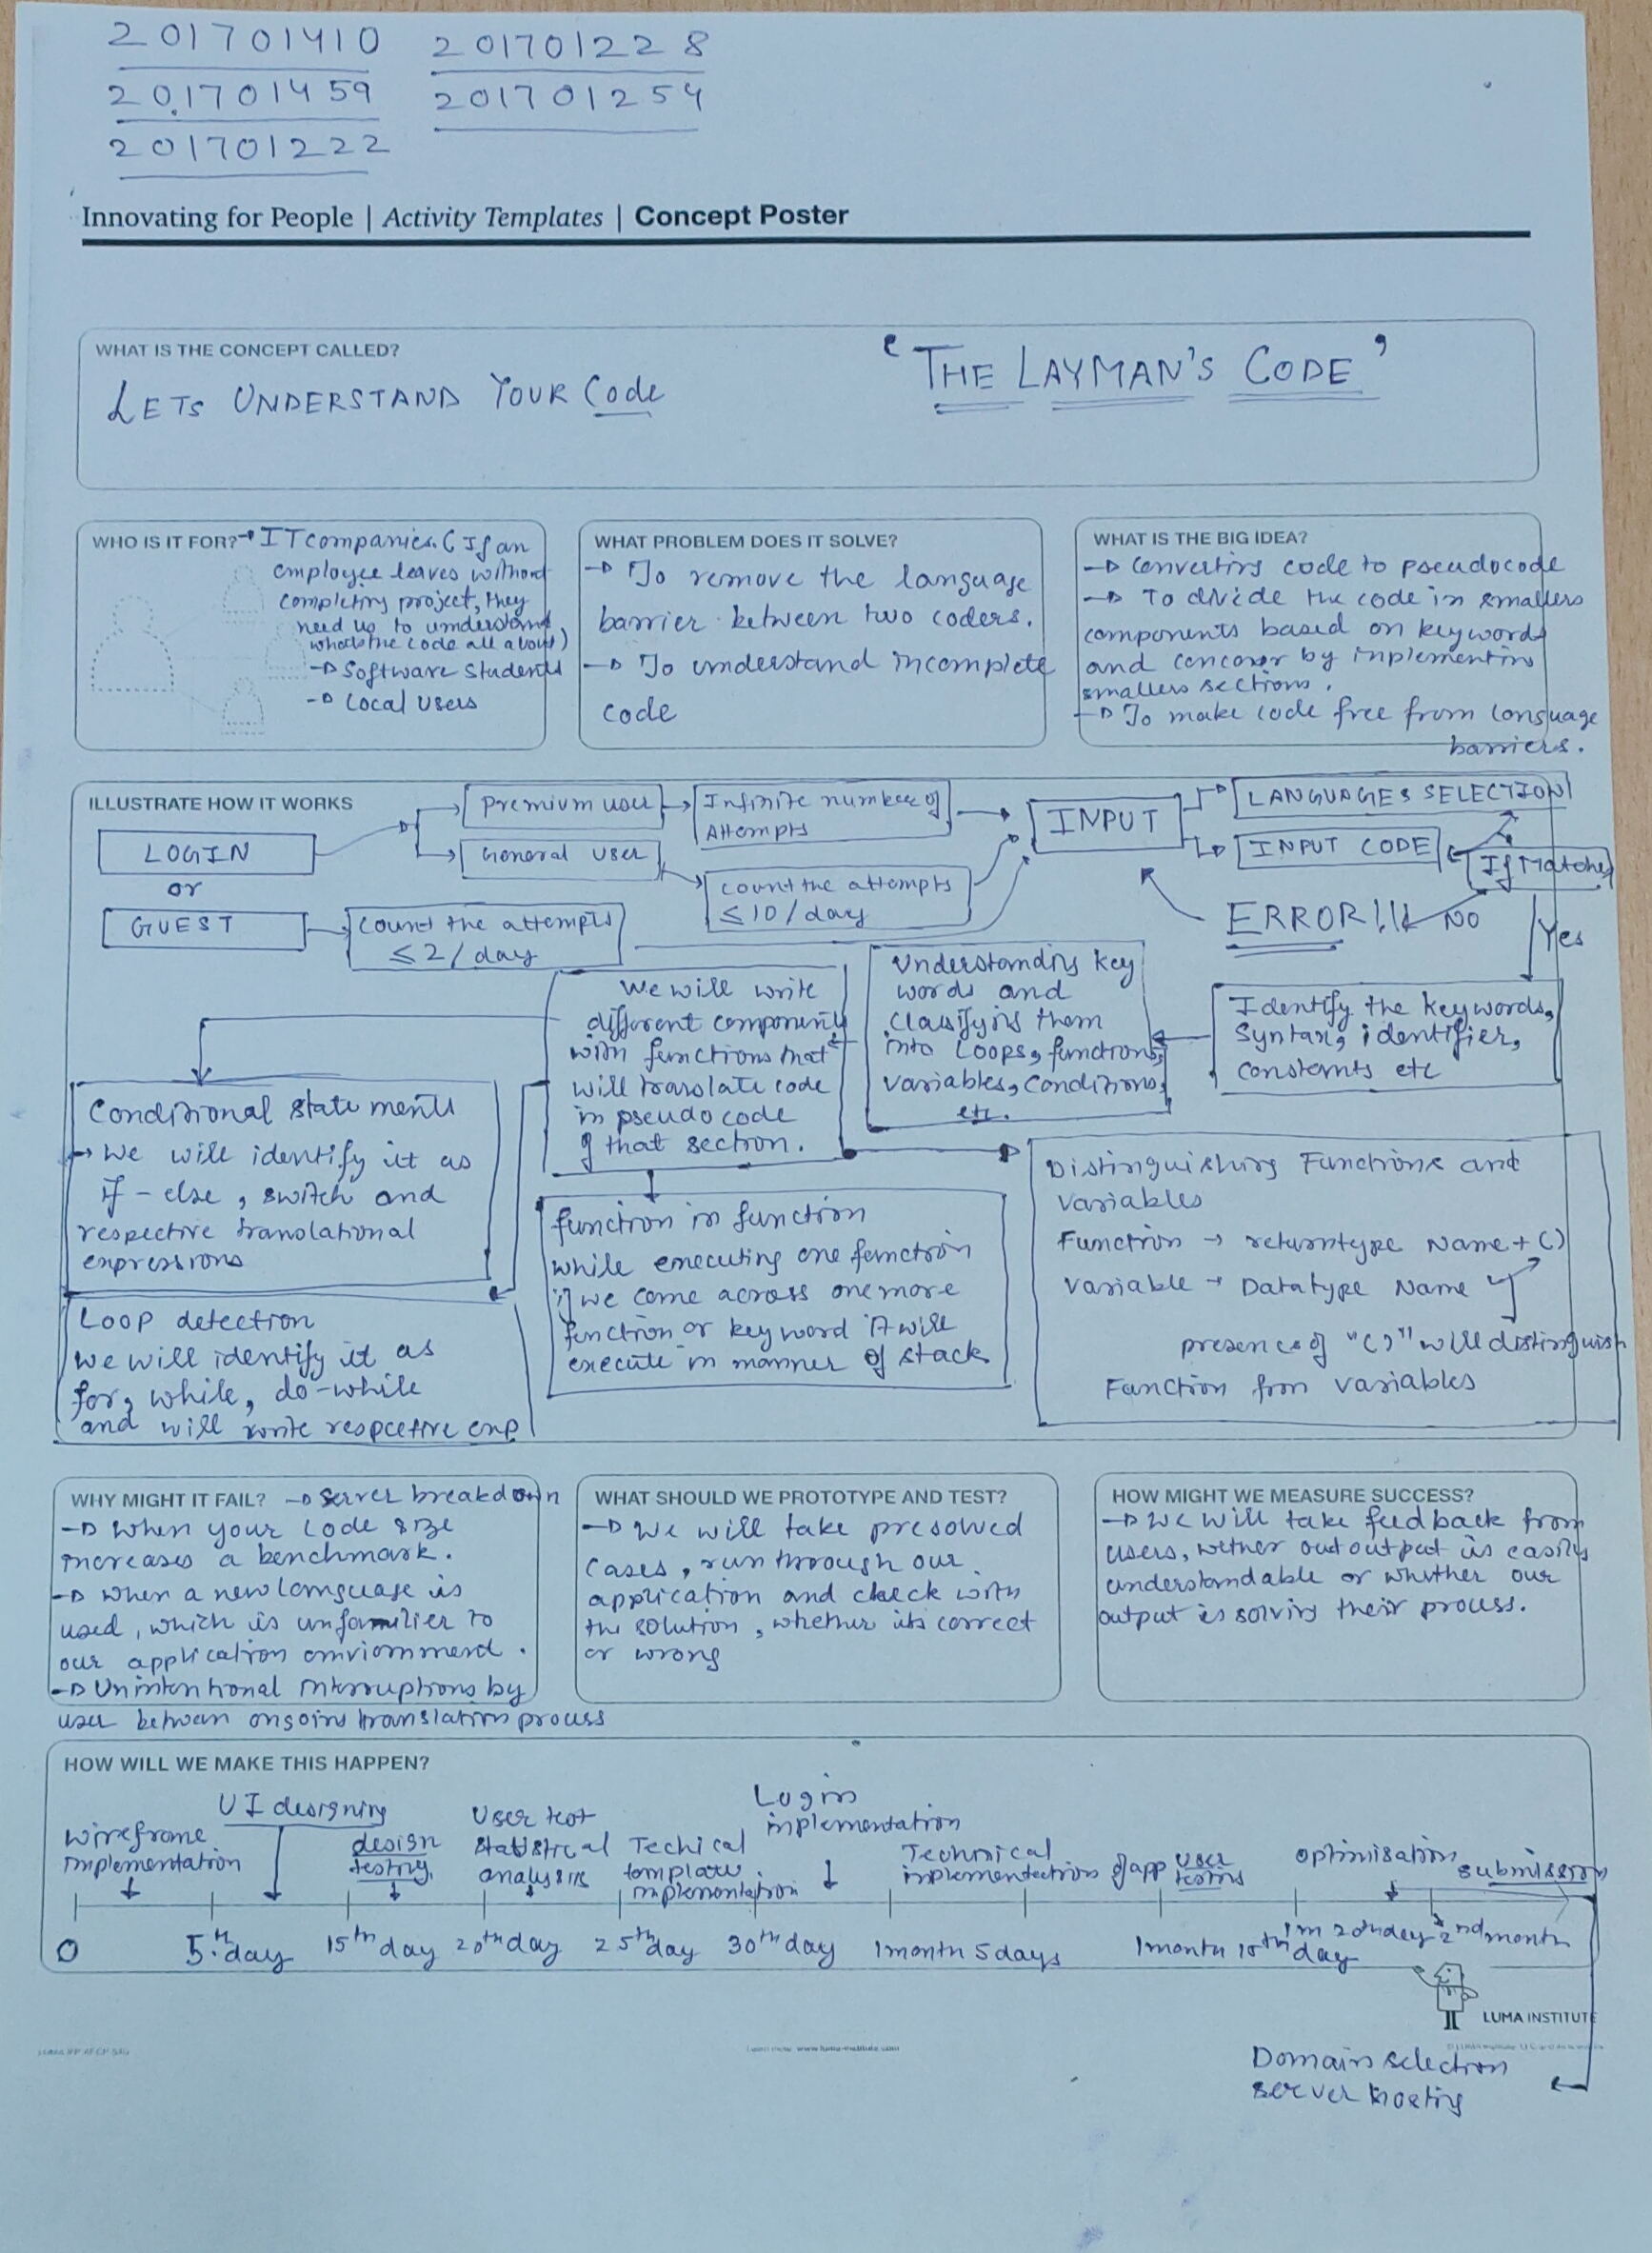 201701410
201701459
201701222
201701228
201701254
Innovating for People | Activity Templates | Concept Poster
WHAT IS THE CONCEPT CALLED?
LETS UNDERSTAND YOUR Code
'THE LAYMAN'S CODE'
WHO IS IT FOR? → IT companies. ( If an
employee leaves without
completing project, they
need us to understand
whats the code all about)
→ Software students
→ Local users
WHAT PROBLEM DOES IT SOLVE?
→ To remove the language
barrier between two coders.
→ To understand incomplete
code
WHAT IS THE BIG IDEA?
→ Converting code to pseudocode
→ To divide the code in smallers
components based on keywords
and concover by inplementing
smallers sections.
→ To make code free from language
barriers.
ILLUSTRATE HOW IT WORKS
LOGIN
or
GUEST
Premium user
Infinite number of
Attempts
General User
count the attempts
≤ 10 / day
count the attempts
≤ 2 / day
INPUT
LANGUAGES SELECTION
INPUT CODE
If Matches
ERROR!!!
NO
Yes
Identify the keywords,
Syntax, identifier,
constants etc
Understanding key
words and
classifying them
into Loops, functions,
variables, conditions,
etc.
We will write
different components
with functions that
will translate code
in pseudo code
of that section.
Conditional statements
→ We will identify it as
if - else, switch and
respective translational
expressions
Loop detection
we will identify it as
for, while, do-while
and will write respcetive exp
function in function
while executing one function
if we come across one more
function or keyword it will
execute in manner of stack
Distinguishing Functions and
variables
Function → returntype Name + ()
variable → Datatype Name
presence of "()" will distinguish
Function from variables
WHY MIGHT IT FAIL? → server breakdown
→ When your code size
increases a benchmark.
→ when a new language is
used, which is unfamilier to
our application enviornment.
→ Unintentional interruptions by
user between ongoing translation process
WHAT SHOULD WE PROTOTYPE AND TEST?
→ We will take presolved
cases, run through our
application and check with
the solution, whether its correct
or wrong
HOW MIGHT WE MEASURE SUCCESS?
→ We will take feedback from
users, wether out output is easily
understandable or whether our
output is solving their process.
HOW WILL WE MAKE THIS HAPPEN?
Wireframe
implementation
UI designing
design
testing
User test
statistical
analysis
Techical
template
implementation
Login
implementation
Technical
implementation of app
user
testing
optimisation
submission
0
5th day
15th day
20th day
25th day
30th day
1 month 5 days
1 month 10th day
1m 20th day
2nd month
LUMA INSTITUTE
Domain selection
server hosting